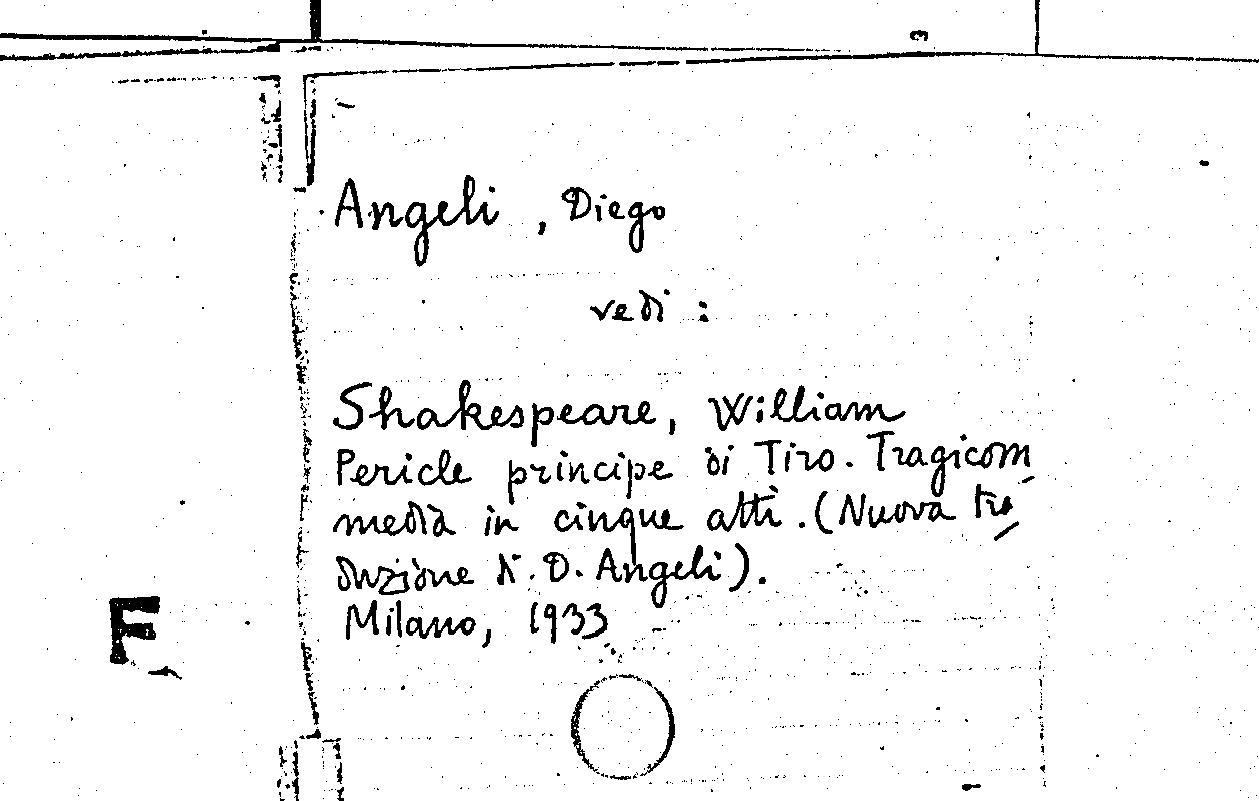 Angeli, Diego
vedi :
Shakespeare, William
Pericle principe di Tiro. Tragicom
media in cinque atti. (Nuova tra
duzione di D. Angeli).
Milano, 1933
F